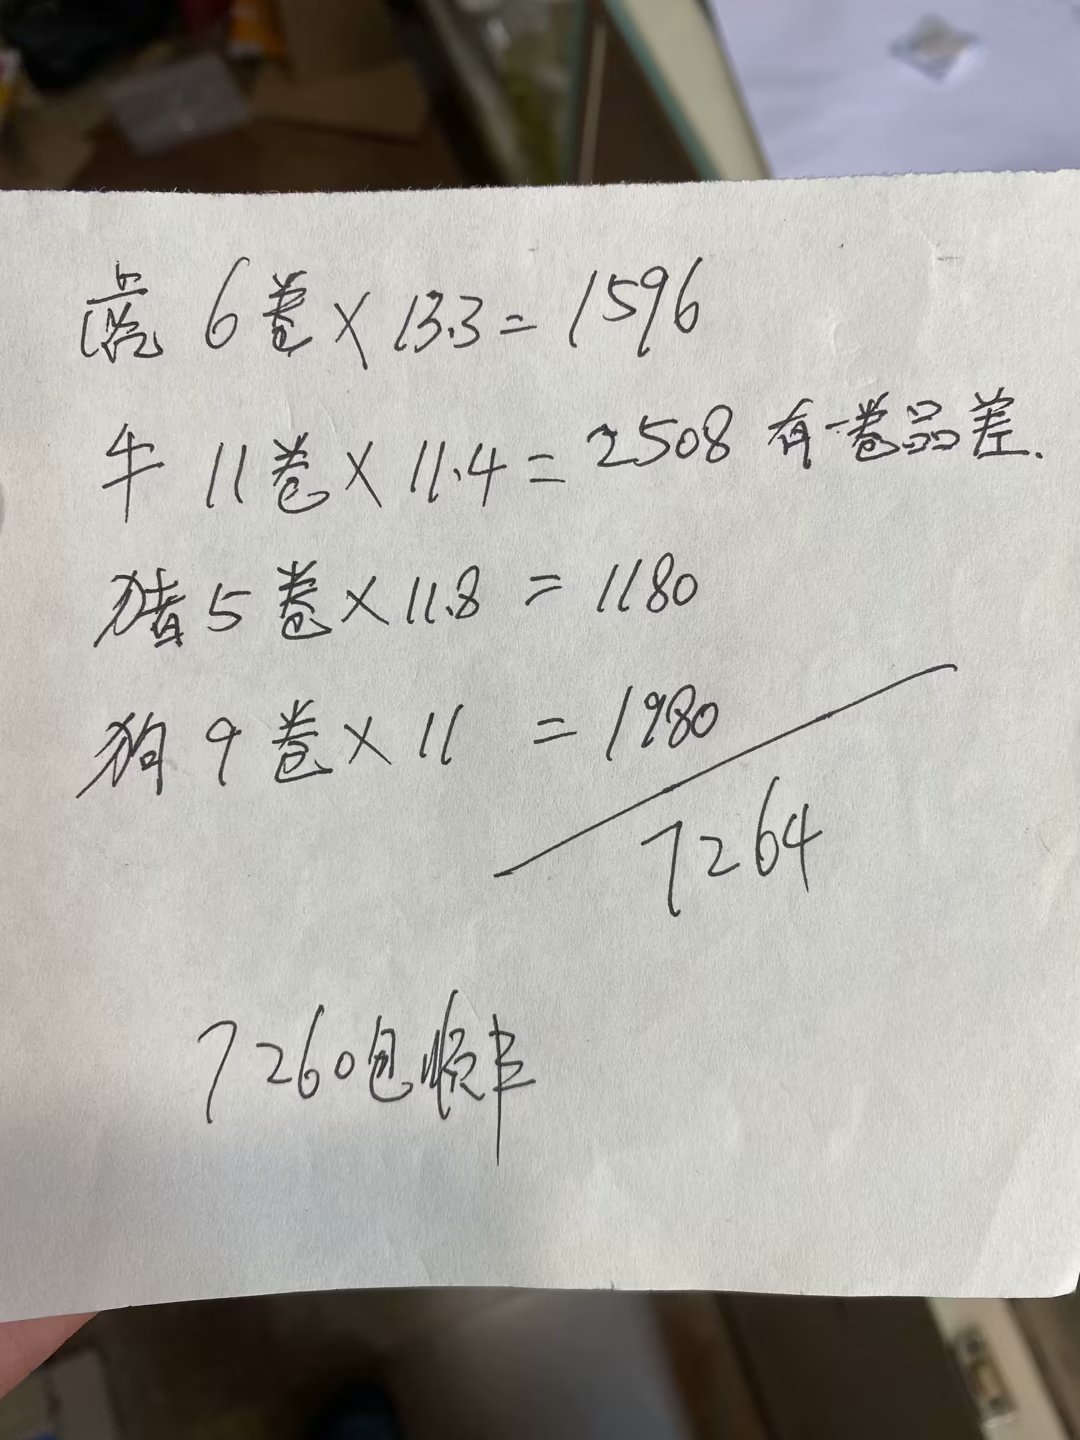 虎 6卷×13.3=1596
牛 11卷×11.4=2508 有一卷品差.
猪5卷×11.8=1180
狗9卷×11=1980
7264
7260包顺丰